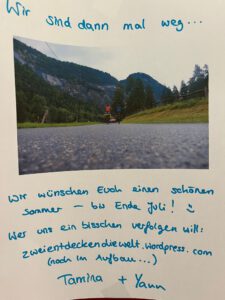 Wir sind dann mal weg...
Wir wünschen Euch einen schönen
Sommer – bis Ende Juli! ☺
Wer uns ein bisschen verfolgen will:
zweientdeckendiewelt.wordpress.com
(noch im Aufbau...)
Tamina + Yann